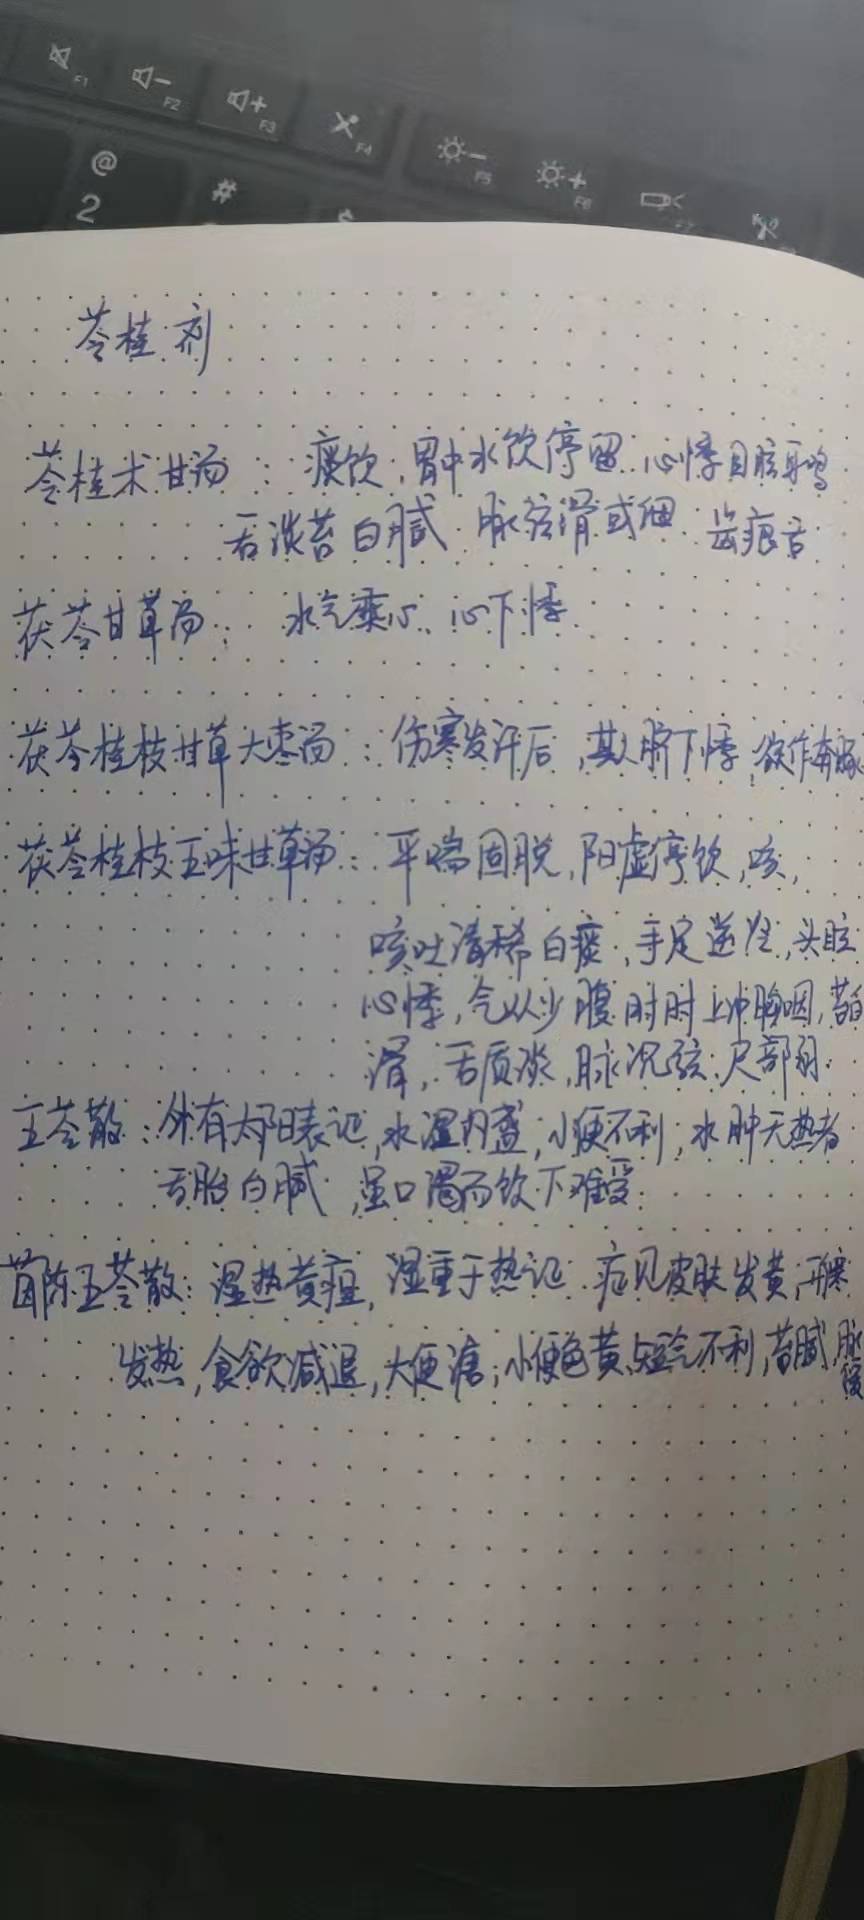 F1 F2 F3 F4 F5 F6 F7
@ #
2 $
苓桂剂
苓桂术甘汤：痰饮，胃中水饮停留，心悸目眩耳鸣
舌淡苔白腻 脉弦滑或细 齿痕舌
茯苓甘草汤：水气乘心、心下悸
茯苓桂枝甘草大枣汤：伤寒发汗后，其人脐下悸，欲作奔豚
茯苓桂枝五味甘草汤：平喘固脱，阳虚停饮，咳，
咳吐清稀白痰，手足逆冷，头眩
心悸，气从少腹时时上冲胸咽，苔白
滑，舌质淡，脉沉弦，尺部弱
五苓散：外有太阳表证，水湿内蓄，小便不利，水肿无热者
舌胎白腻，虽口渴而饮下难受
茵陈五苓散：湿热黄疸，湿重于热证 症见皮肤发黄，形寒
发热，食欲减退，大便溏，小便色黄短 不利，苔腻，脉
缓